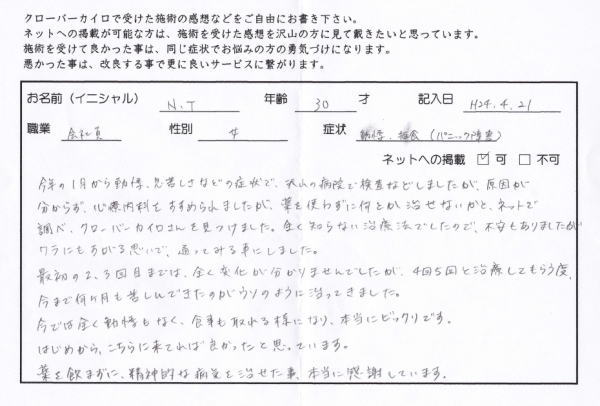 クローバーカイロで受けた施術の感想などをご自由にお書き下さい。
ネットへの掲載が可能な方は、施術を受けた感想を沢山の方に見て戴きたいと思っています。
施術を受けて良かった事は、同じ症状でお悩みの方の勇気づけになります。
悪かった事は、改良する事で更に良いサービスに繋がります。
お名前（イニシャル） N.T 年齢 30 才 記入日 H24.4.21
職業 会社員 性別 女 症状 動悸、拒食（パニック障害）
ネットへの掲載 ☑ 可 □ 不可
今年の1月から動悸、息苦しさなどの症状で、沢山の病院で検査などしましたが、原因が
分からず、心療内科をすすめられましたが、薬を使わずに何とか治せないかと、ネットで
調べ、クローバーカイロさんを見つけました。全く知らない治療法でしたので、不安もありましたが
ワラにもすがる思いで、通ってみる事にしました。
最初の2、3回目までは、全く変化が分かりませんでしたが、4回5回と治療してもらう度、
今まで何ヶ月も苦しんできたのがウソのように治ってきました。
今では全く動悸もなく、食事も取れる様になり、本当にビックリです。
はじめから、こちらに来てれば良かったと思っています。
薬を飲まずに、精神的な病気を治せた事、本当に感謝しています。